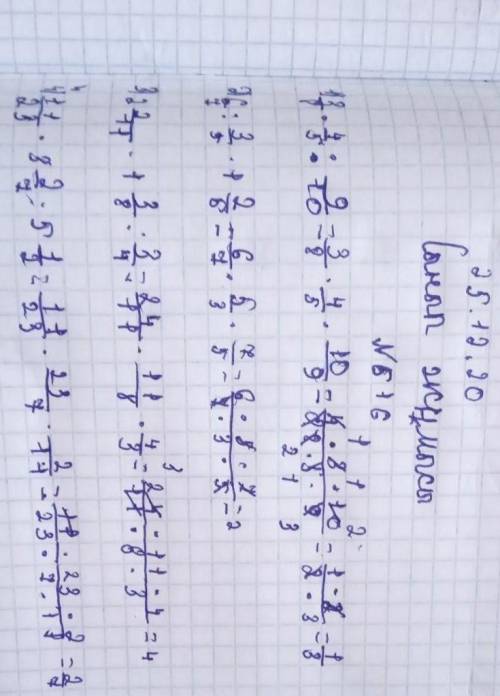 25.12.20
Сынып жұмысы
1) 3/8 · 4/5 : 9/10 = 3/8 · 4/5 · 10/9 = = 1·2/2·3 = 1/3
2) 6/7 : 3/5 · 1 2/5 = 6/7 · 5/3 · 7/5 = 6·5·7/7·3·5 = 2
3) 2 2/11 · 1 3/8 : 3/4 = 24/11 · 11/8 · 4/3 = 24·11·4/11·8·3 = 4
4) 11/23 · 3 2/7 : 5 1/2 = 11/23 · 23/7 · 2/11 = 11·23·2/23·7·11 = 2/7